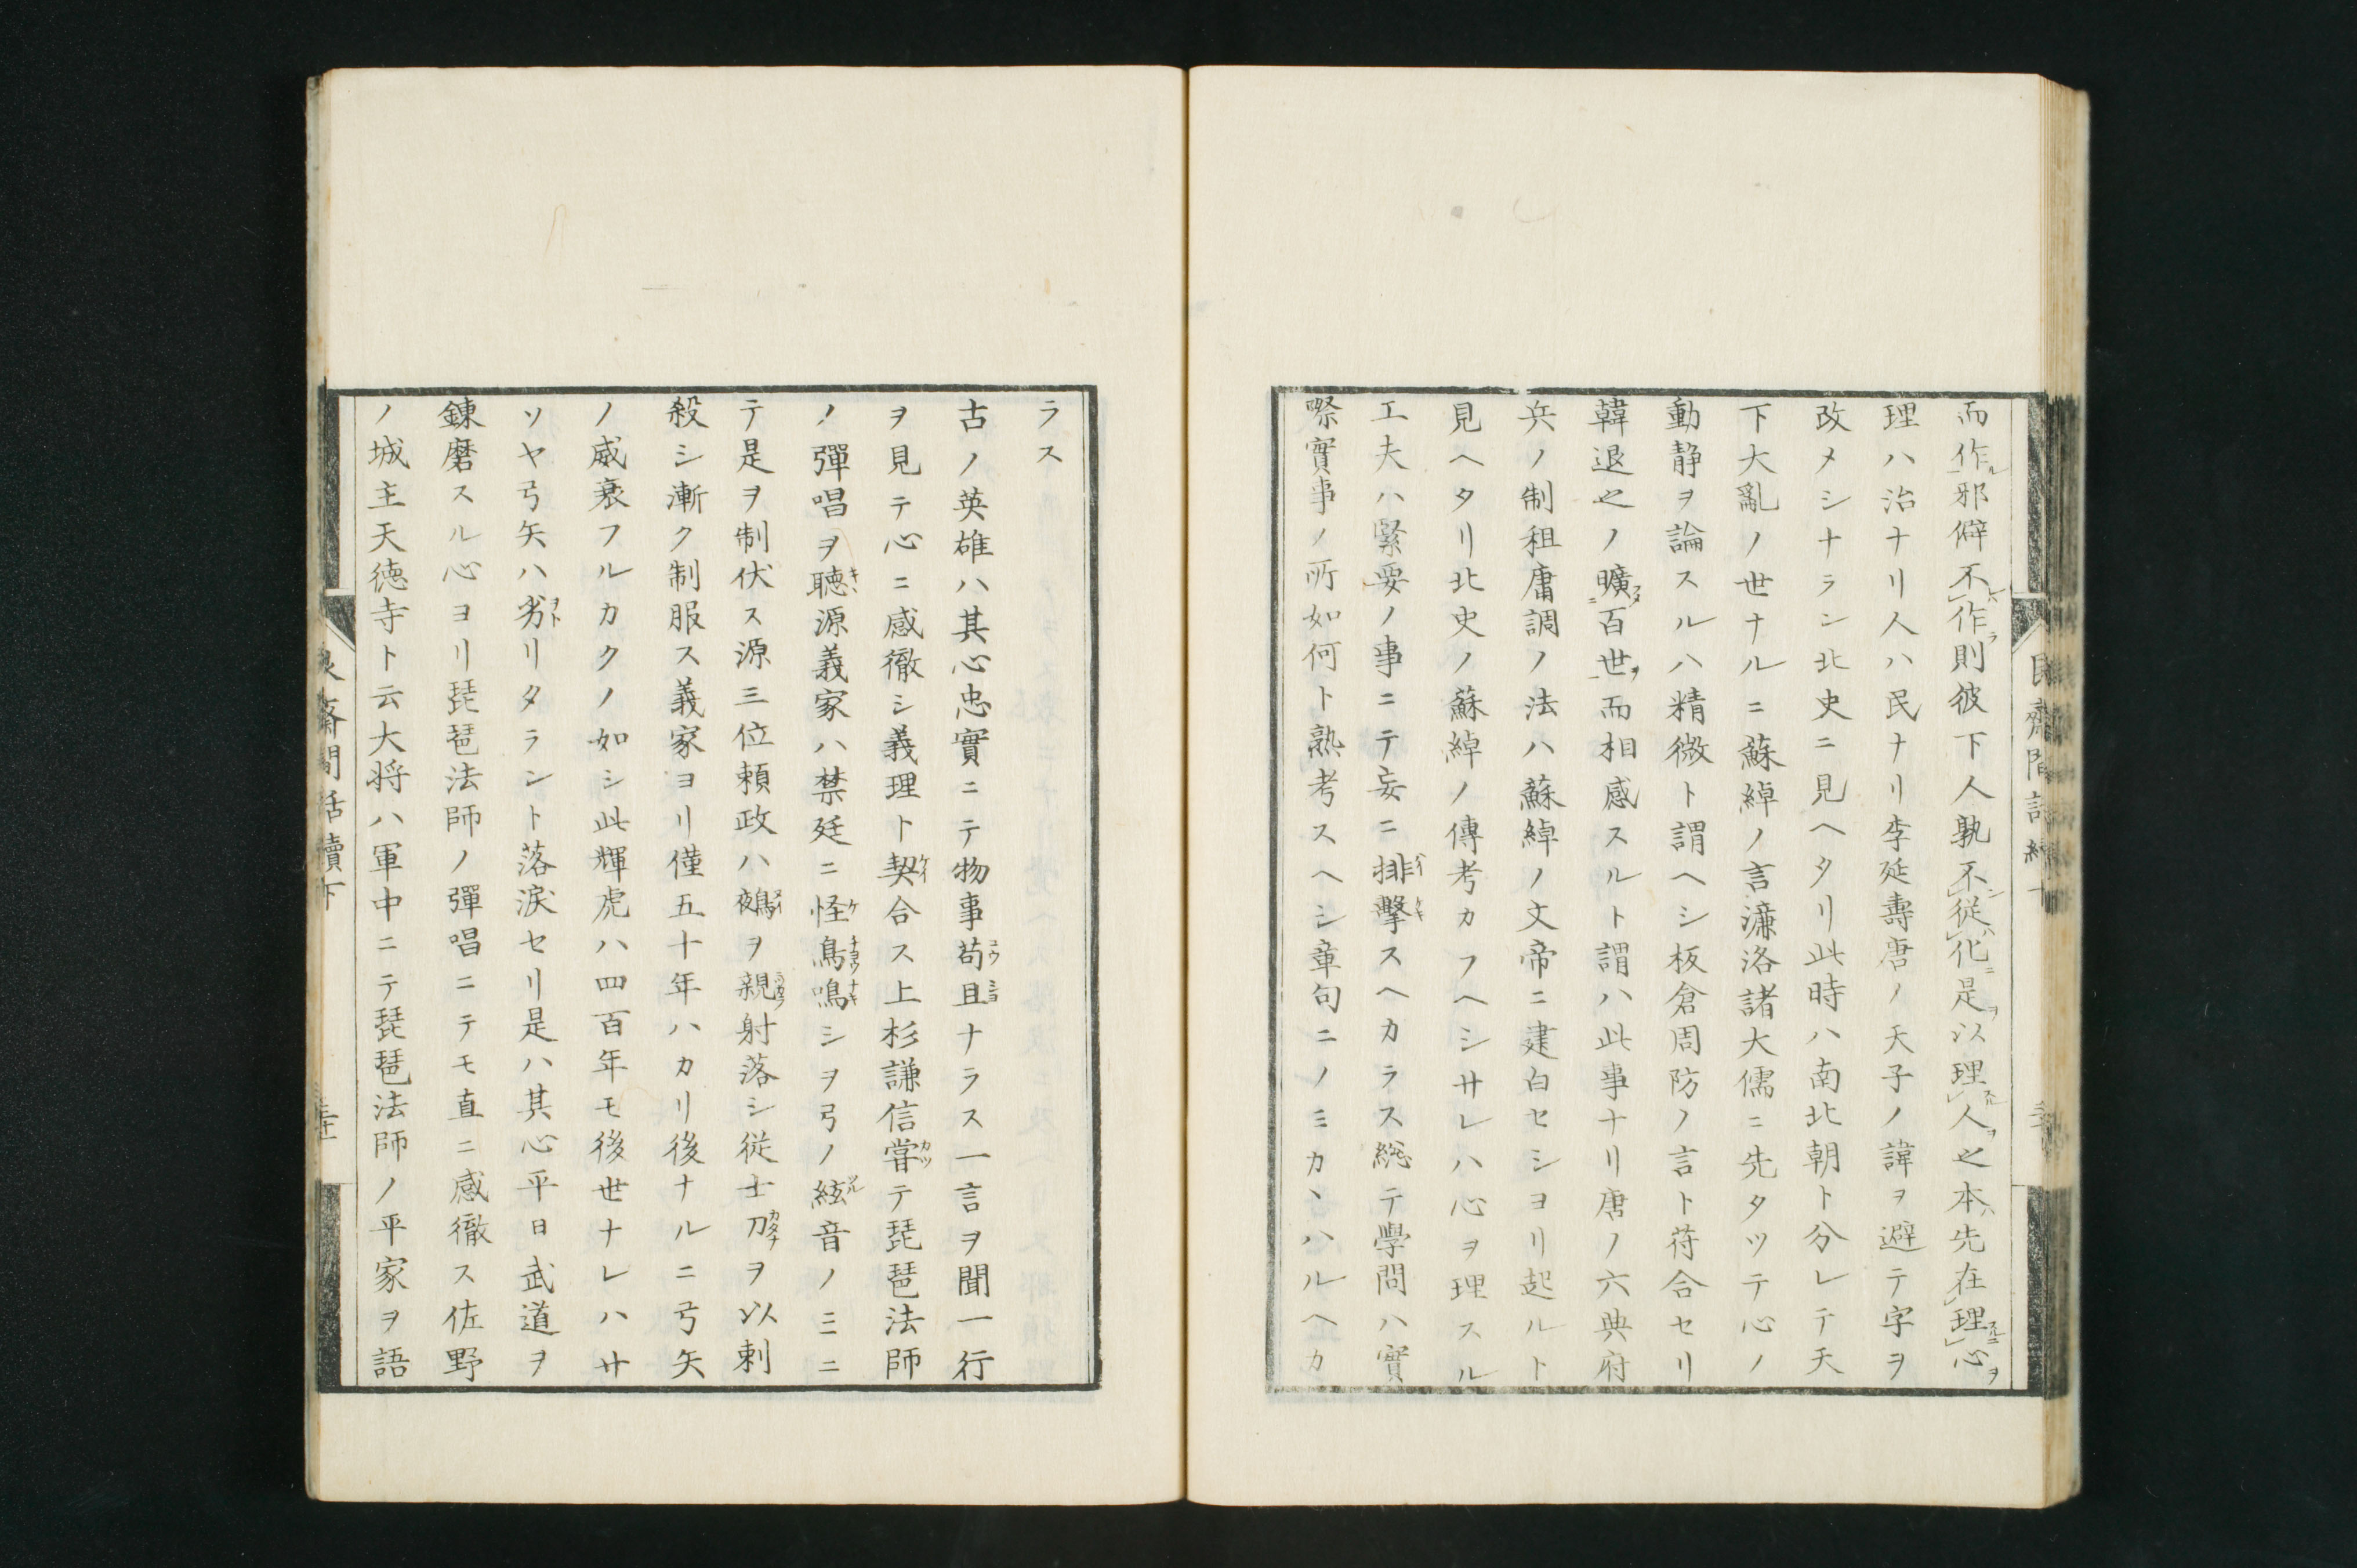 而作邪僻不作則彼下人孰不從化是以理人之本先在理心
理ハ治ナリ人ハ民ナリ李延壽唐ノ天子ノ諱ヲ避テ字ヲ
改メシナラン北史ニ見ヘタリ此時ハ南北朝ト分レテ天
下大亂ノ世ナルニ蘇綽ノ言濂洛諸大儒ニ先タツテ心ノ
動静ヲ論スルハ精微ト謂ヘシ板倉周防ノ言ト苻合セリ
韓退之ノ曠百世而相感スルト謂ハ此事ナリ唐ノ六典府
兵ノ制租庸調ノ法ハ蘇綽ノ文帝ニ建白セシヨリ起ルト
見ヘタリ北史ノ蘇綽ノ傳考カフヘシサレハ心ヲ理スル
工夫ハ緊要ノ事ニテ妄ニ排擊スヘカラス総テ學問ハ實
際實事ノ所如何ト熟考スヘシ章句ニノミカヽハルヘカ
ラス
古ノ英雄ハ其心忠實ニテ物事苟且ナラス一言ヲ聞一行
ヲ見テ心ニ感徹シ義理ト契合ス上杉謙信甞テ琵琶法師
ノ彈唱ヲ聽源義家ハ禁廷ニ怪鳥鳴シヲ弓ノ絃音ノミニ
テ是ヲ制伏ス源三位頼政ハ鵺ヲ親射落シ従士刀ヲ以刺
殺シ漸ク制服ス義家ヨリ僅五十年ハカリ後ナルニ弓矢
ノ威衰フルカクノ如シ此輝虎ハ四百年モ後世ナレハサ
ソヤ弓矢ハ劣リタラント落涙セリ是ハ其心平日武道ヲ
錬磨スル心ヨリ琵琶法師ノ彈唱ニテモ直ニ感徹ス佐野
ノ城主天徳寺ト云大将ハ軍中ニテ琵琶法師ノ平家ヲ語